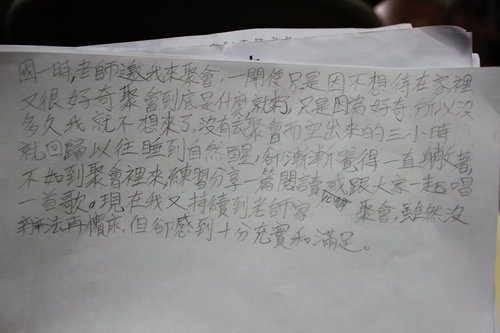 國一時,老師邀我來聚會,一開使只是因不想待在家裡
又很好奇聚會到底是什麼就去,只是因為好奇,所以沒
多久我就不想來了,沒有去聚會而空出來的三小時
就回歸以往睡到自然醒,卻漸漸覺得一直躺著,
不如到聚會裡來,練習分享一篇閱讀,或跟大家一起唱
一首歌。現在我又持續到老師家 聚會,雖然沒
辦法再懶床,但卻感到十分充實和滿足。